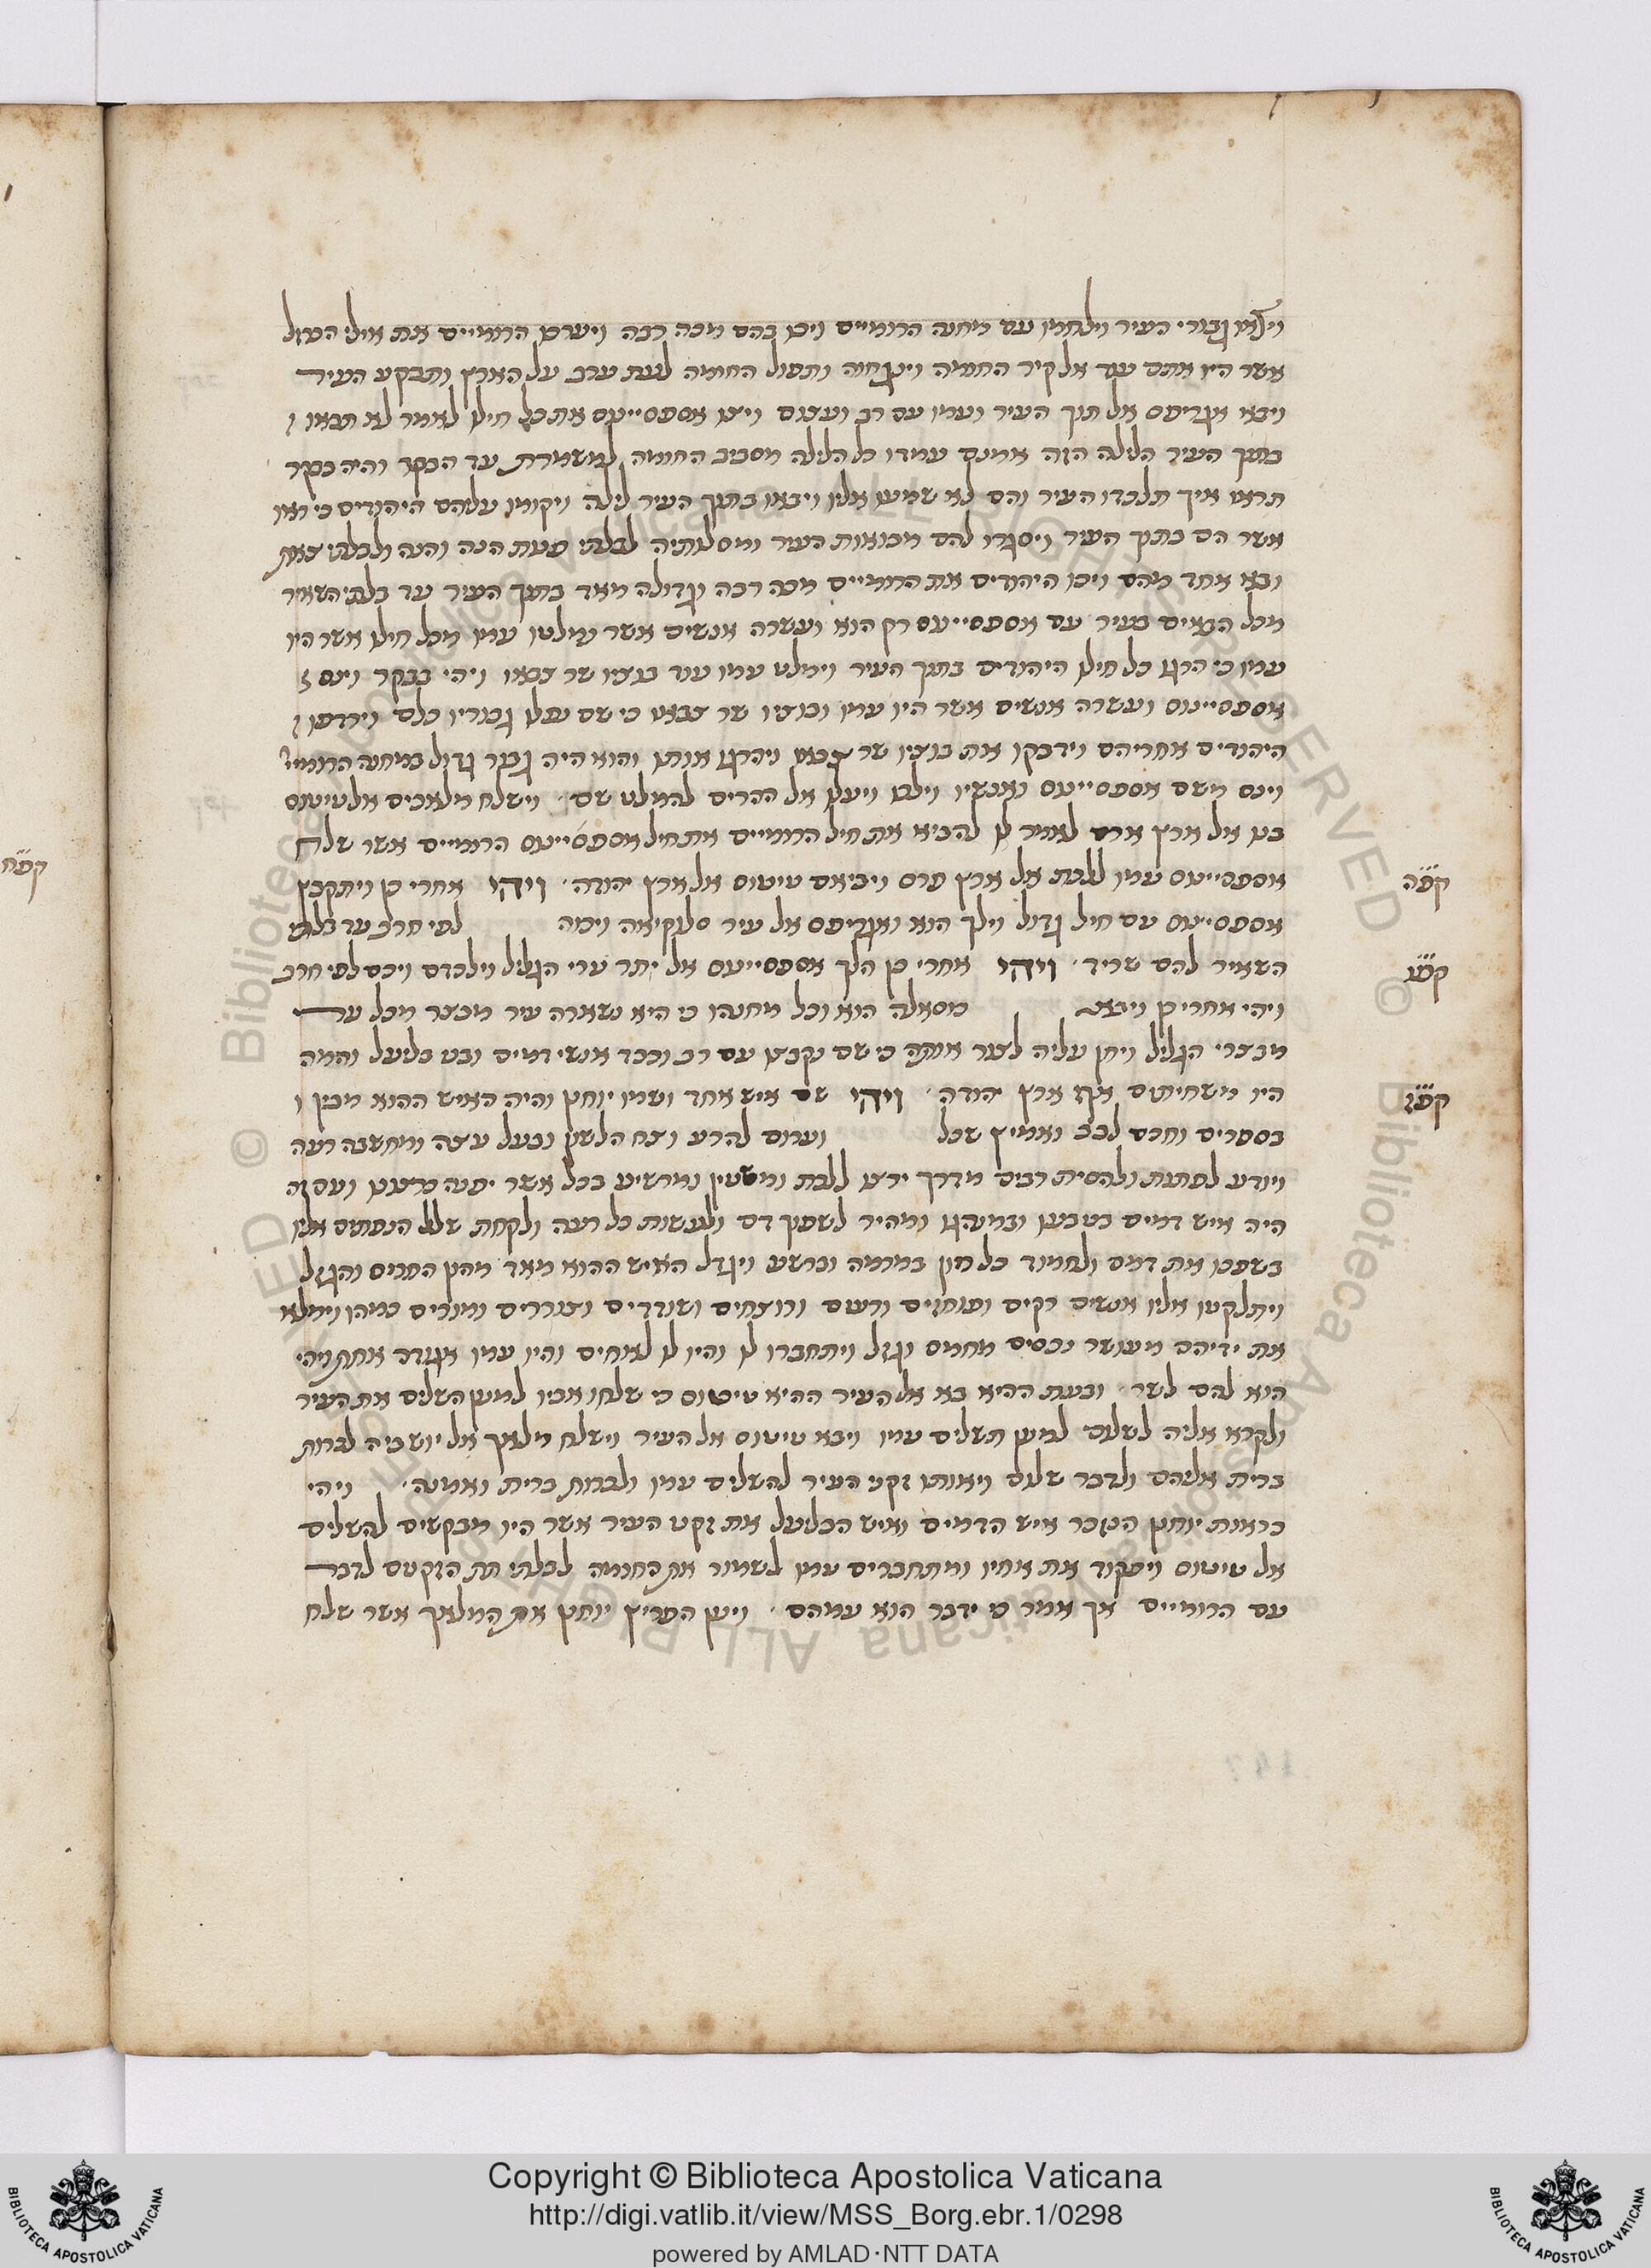 ויצאו גבורי העיר וילחמו עם מחנה הרומיים ויכו בהם מכה רבה ויערכו הרומיים את אילי הברזל
אשר היו אתם עד אל קיר החומה וינגחוה ותפול החומה לעת ערב על הארץ ותבקע העיר
ויבא אגריפס אל תוך העיר ועמו עם רב ועצום ויצו אספסיינוס את כל חילו לאמר לא תבאו
בתוך העיר הלילה הזה אמנם עמדו כל הלילה מסביב החומה למשמרת עד הבקר והיה בבקר
תראו איך תלכדו העיר והם לא שמעו אליו ויבאו בתוך העיר לילה ויקומו עליהם היהודים כי ראו
אשר הם בתוך העיר ויסגרו להם מבואות העיר ומסלותיה לבלתי פנות הנה והנה ולבלתי צאת
ובא אחד מהם ויכו היהודים את הרומיים מכה רבה וגדולה מאד בתוך העיר עד בלתי השאיר
מכל הבאים בעיר עם אספסיינוס רק הוא ועשרה אנשים אשר נמלטו עמו מכל חילו אשר היו
עמו כי הרגו כל חילו היהודים בתוך העיר וימלט עמו עוד בנציו שר צבאו ויהי בבקר וינס
אספסיינוס ועשרה אנשים אשר היו עמו ובנציו שר צבאו כי שם נפלו גבוריו כלם וירדפו
היהודים אחריהם וידבקו את בנציו שר צבאו ויהרגו אותו והוא היה גבור גדול במחנה הרומיי
וינס משם אספסיינוס ואנשיו וילכו ויעלו אל ההרים להמלט שם. וישלח מלאכים אל טיטוס
בנו אל ארץ ארם לאמר לו להביא את חיל הרומיים את חיל אספסיינוס הרומיים אשר שלח
אספסיינוס עמו ללכת אל ארץ פרס ויביאם טיטוס אל ארץ יהודה. ויהי אחרי כן ויתקבץ
קפה
אספסיינוס עם חיל גדול וילך הוא ואגריפס אל עיר סלוקיאה ויכוה לפי חרב עד בלתי
השאיר להם שריד. ויהי אחרי כן הלך אספסיינוס אל יתר ערי הגליל וילכדם ויכם לפי חרב
קפו
ויהי אחרי כן ויבא מסאלה הוא וכל מחנהו כי היא נשארה עיר מבצר מכל ערי
מבצרי הגליל ויחן עליה לצור אותה כי שם נקבצו עם רב וכבד אנשי דמים ובני בליעל והמה
היו משחיתים את ארץ יהודה. ויהי שם איש אחד ושמו יוחנן והיה האיש ההוא מבין
קפז
בספרים וחכם לבב ואמיץ שכל וערום להרע וצח הלשון ובעל עצה ומחשבה רעה
ויודע לפתות ולהסית רבים מדרך ידעו ללכת ומשטין ומרשיע בכל אשר יפנה כרצונו ועם זה
היה איש דמים בטבעו ובמנהגו ומהיר לשפוך דם ולעשות כל רעה ולקחת שלל הנפתים אליו
בשפכו את דמם ולחמוד כל הון במרמה וברשע ויגדל האיש ההוא מאד מהון החמס והגזל
ויתלקטו אליו אנשים רקים ופוחזים ורעים ורוצחים ושודדים וצוררים ומורים כמהו וימלא
את ידיהם מעושר נכסים מחמס וגזל ויתחברו לו והיו לו לאחים והיו עמו אגודה אחת ויהי
הוא להם לשר. ובעת ההיא בא אל העיר ההיא טיטוס כי שלחו אביו למען השלים את העיר
ולקרא אליה לשלום למען תשלים עמו ויבא טיטוס אל העיר וישלח מלאך אל יושביה לכרות
ברית אליהם ולדבר שלום ויאותו זקני העיר להשלים עמו ולכרות ברית ואמנה. ויהי
כראות יוחנן הנזכר איש הדמים ואיש הבליעל את זקני העיר אשר היו מבקשים להשלים
אל טיטוס ויפקוד את אחיו ומתחברים עמו לשמור את החומה לבלתי תת הזקנים לדבר
עם הרומיים אך אמר כי ידבר הוא עמהם. ויען הפריץ יוחנן את המלאך אשר שלח
קפח
Copyright © Biblioteca Apostolica Vaticana
http://digi.vatlib.it/view/MSS_Borg.ebr.1/0298
powered by AMLAD·NTT DATA